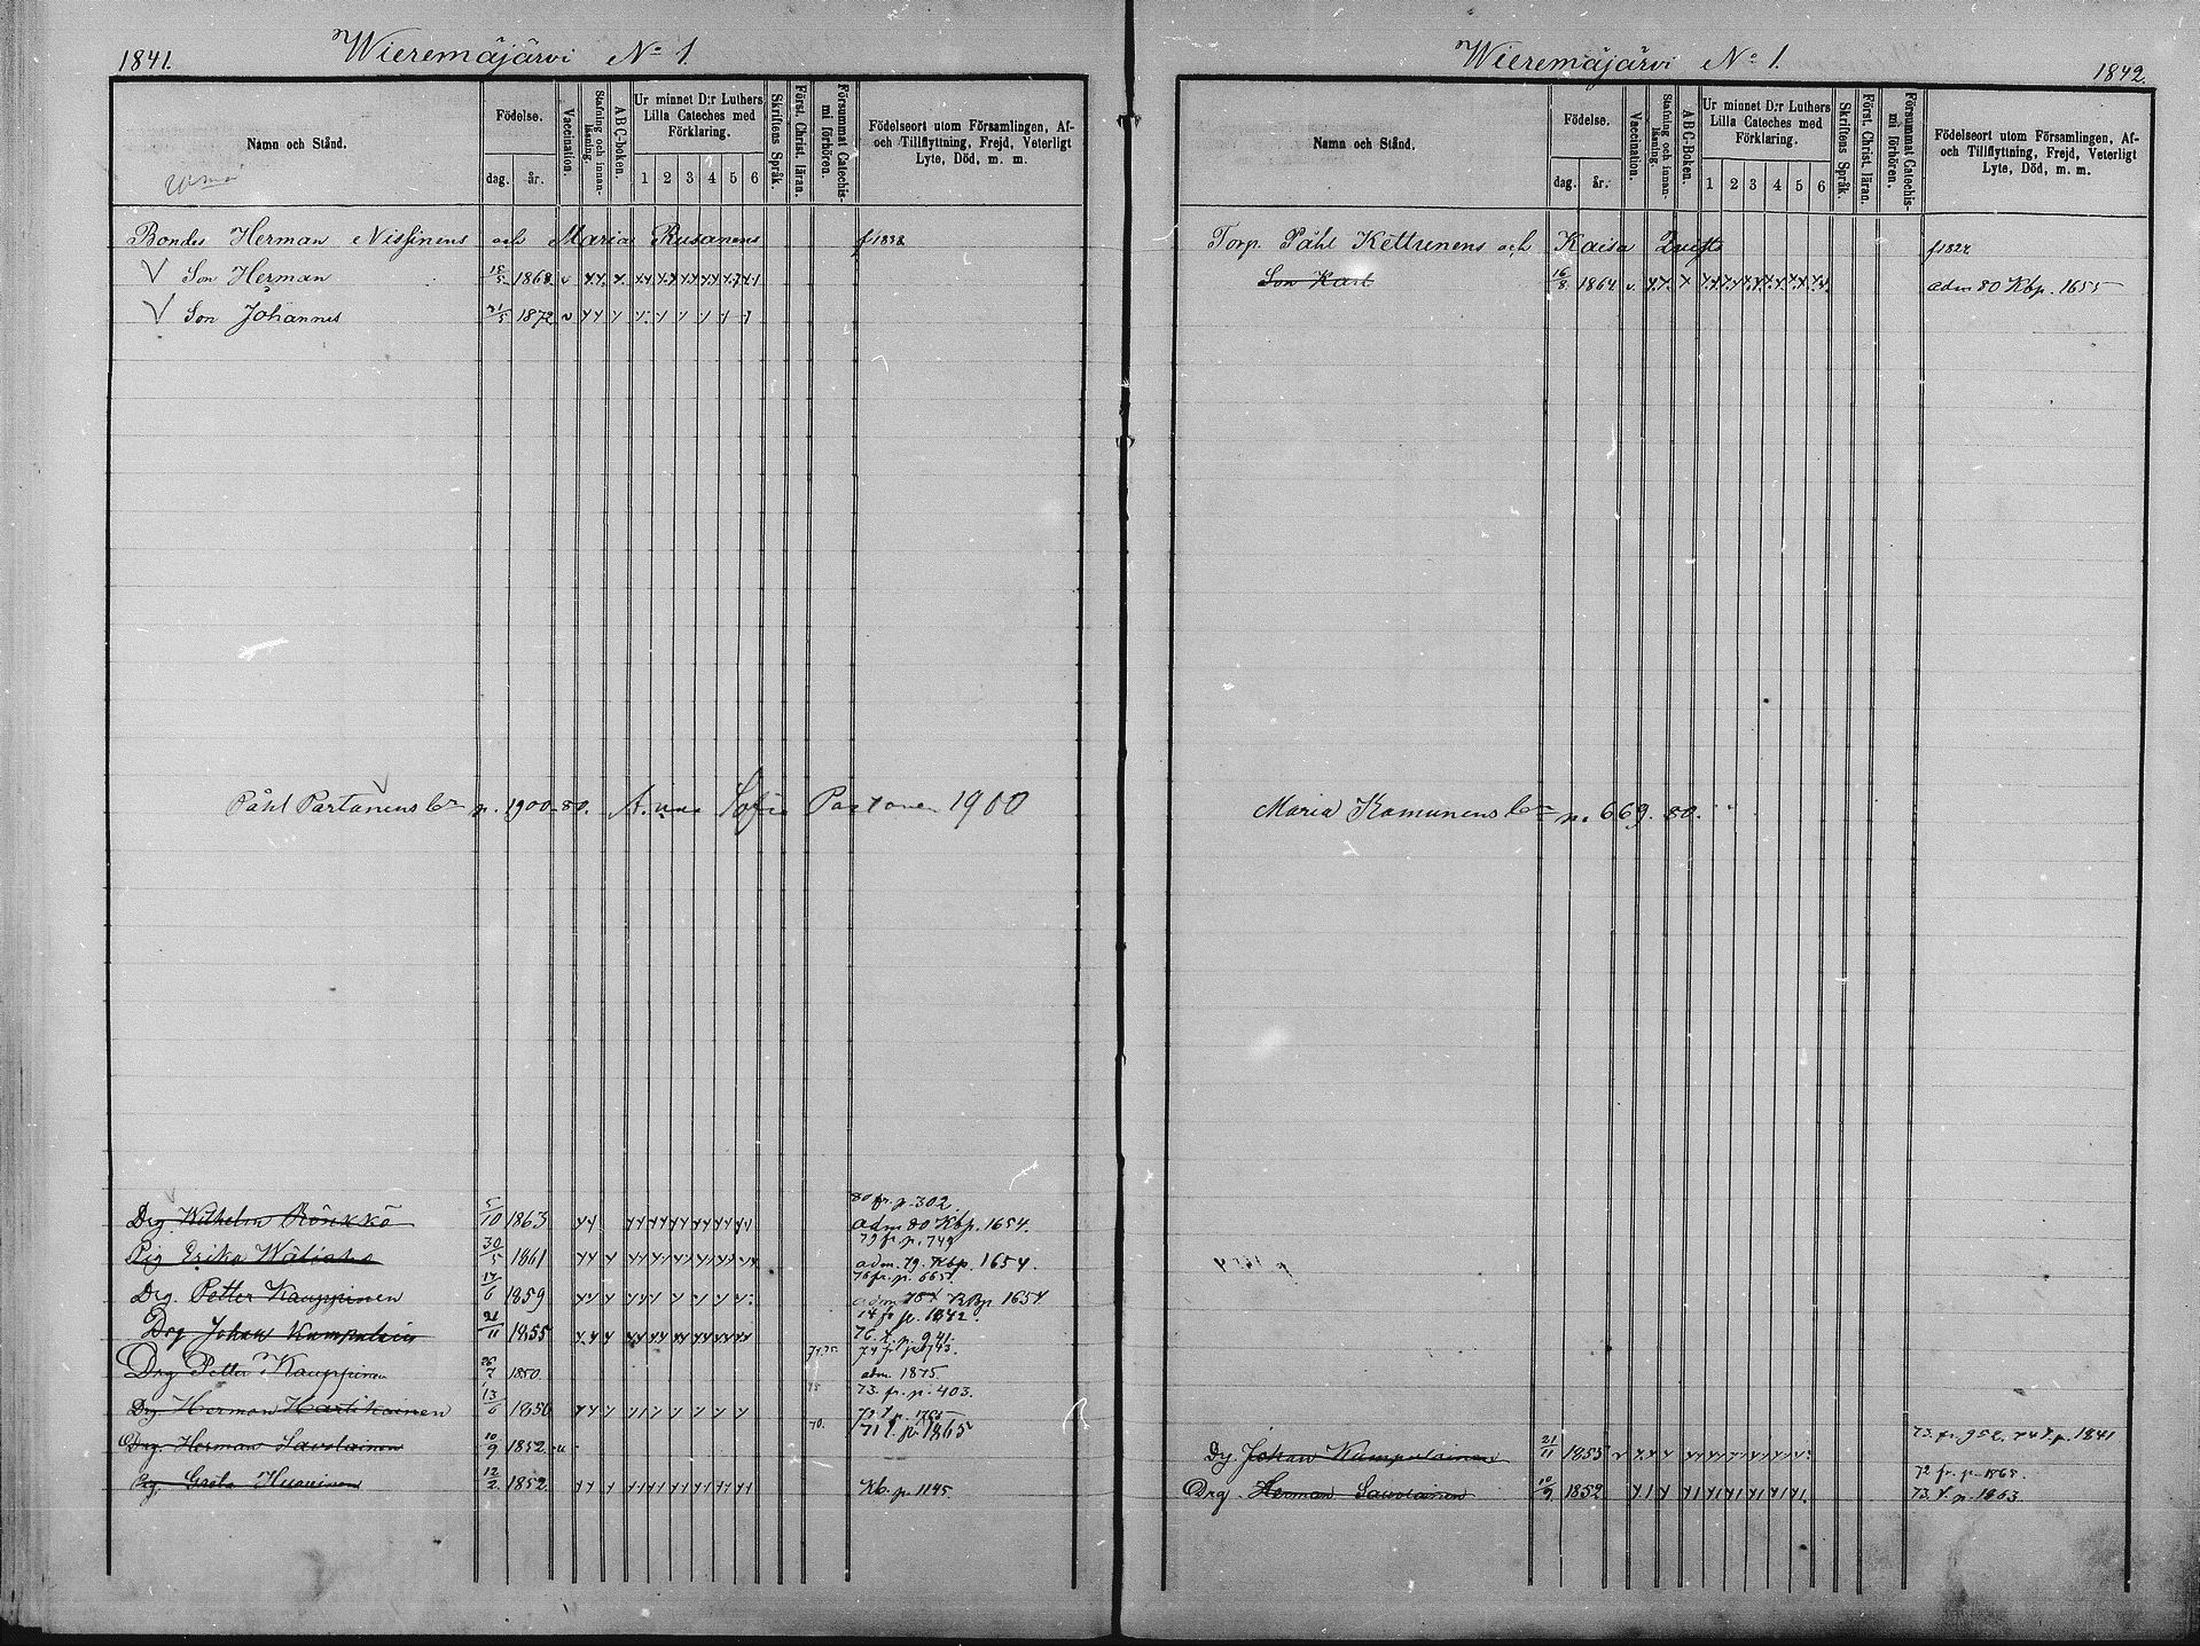 1841.
Wieremäjärvi No 1.
Namn och Stånd.
Födelse.
dag.
år.
Vaccination.
Stafning och innan-läsning.
ABC-boken.
Ur minnet D:r Luthers Lilla Cateches med Förklaring.
1 2 3 4 5 6
Skriftens Språk.
Först. Christ. läran.
Försummat Catechis-mi förhören.
Födelseort utom Församlingen, Af-
och Tillflyttning, Frejd, Veterligt
Lyte, Död, m. m.
Bondes Herman Nissinens och Maria Rusanens f1832
Son Herman 15/5 1868
Son Johannes 21/5 1872
Påhl Partanens p. 1900-80. Anna Sofia Partanen 1900
80 fr. p. 302
Drg Wilhelm Rönkkö 5/10 1863 adm 80 Kbp. 1654.
79 fr p. 749
Pig Erika 30/5 1861 adm. 79. Kbp. 1654.
76 fr. p. 665
Drg. Petter Kauppinen 17/6 1859 adm 78 Kbp 1654
74 fr p. 1842.
Drg Johan Kumpulain 21/11 1855 76. t. p. 941.
74 fr p. 743.
Drg Petter Kauppinen 26/7 1850 74.75. adm. 1875.
73. fr. p. 403.
Drg Herman Hartikainen 13/6 1850
71 t. p. 1865
Drg. Herman Savolainen 10/9 1852 70.
Pig. Greta Huovinen 12/2 1852 Kb. p. 1145
Wieremäjärvi No 1.
1842.
Namn och Stånd.
Födelse.
dag.
år.
Vaccination.
Stafning och innan-läsning.
ABC-Boken.
Ur minnet D:r Luthers Lilla Cateches med Förklaring.
1 2 3 4 5 6
Skriftens Språk.
Först. Christ. läran.
Försummat Catechis-mi förhören.
Födelseort utom Församlingen, Af-
och Tillflyttning, Frejd, Veterligt
Lyte, Död, m. m.
Torp. Påhl Kettunens och Kaisa f1822
Son Karl 16/8 1864 adm 80 Kbp. 1655
Maria Komunens p. 669. 80.
73. fr. 952. 74 t. p. 1841
Dg. Johan Kumpulainen 21/11 1855
72 fr. p. 1865.
Drg. Herman Savolainen 10/9 1852 73. t. p. 1863